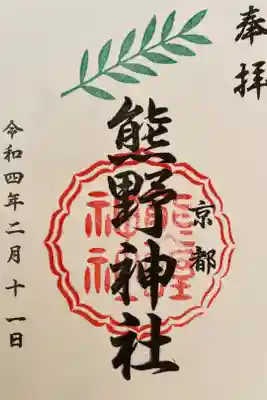 奉拝
京都
熊野神社
令和四年二月十一日